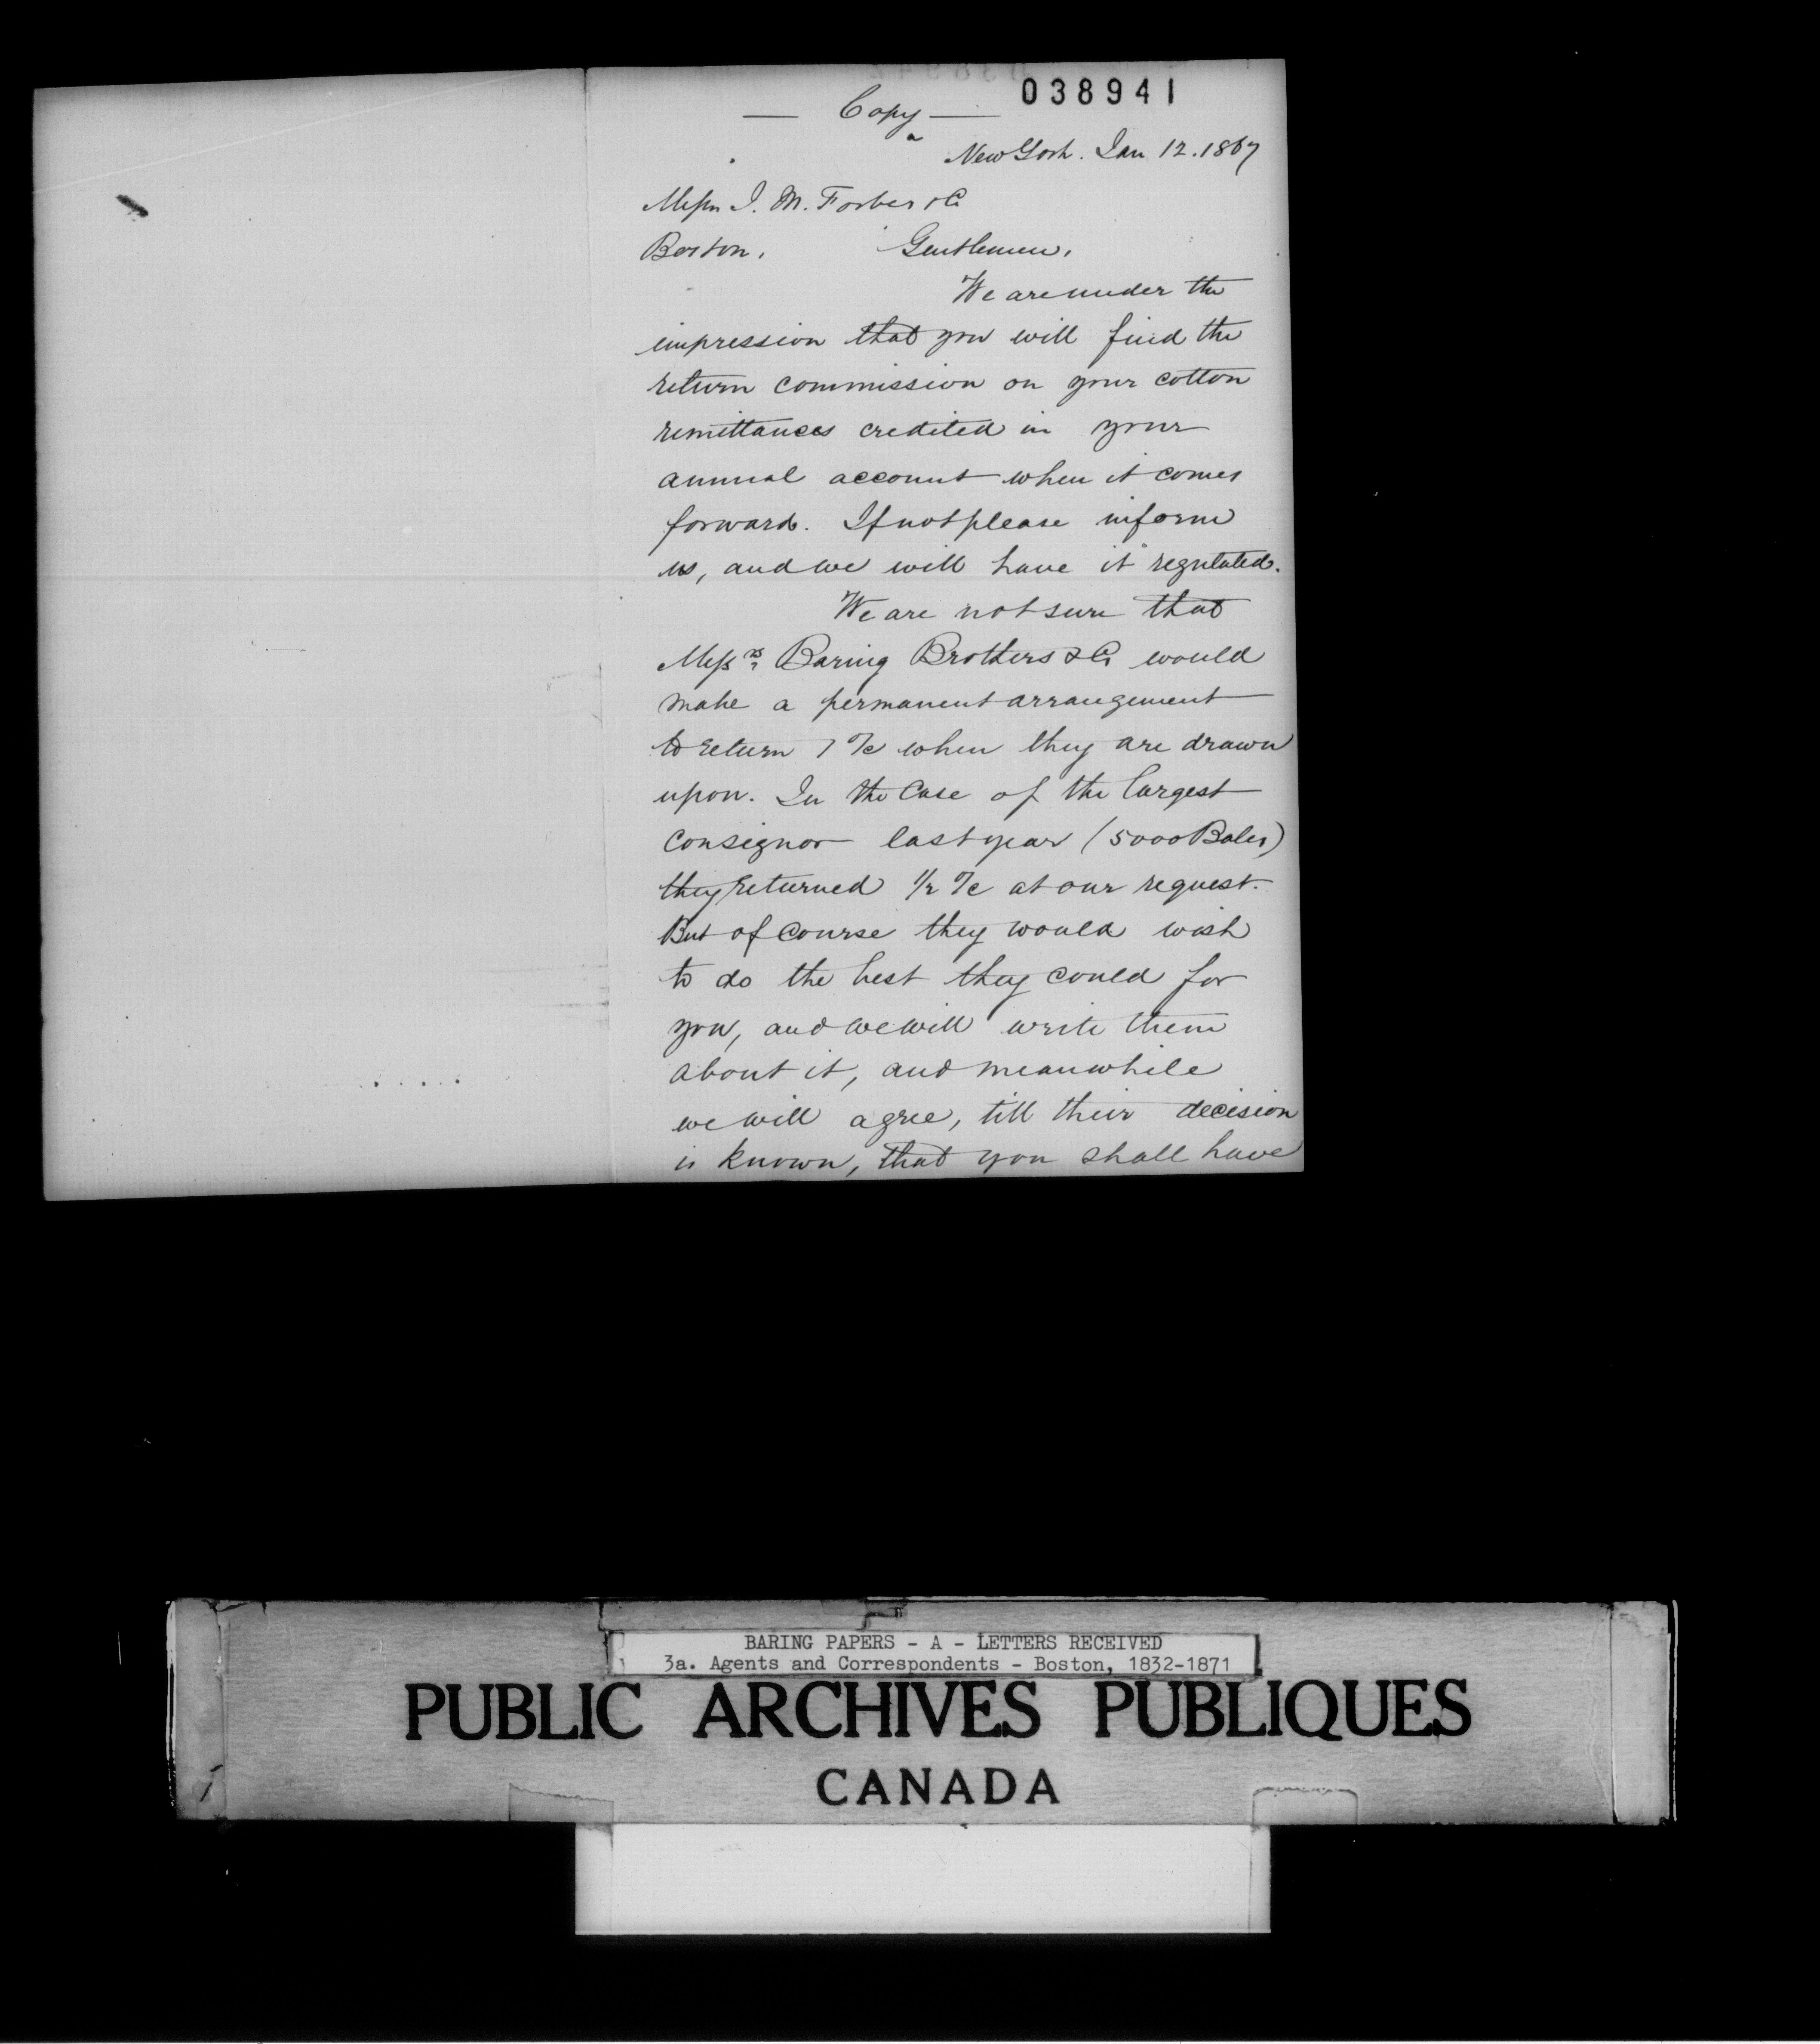 038941
— Copy —
New York. Jan 12. 1867
Messrs J. M. Forbes & Co
Boston.
Gentlemen,
We are under the
impression that you will find the
return commission on your cotton
remittances credited in your
annual account when it comes
forward. If not please inform
us, and we will have it regulated.
We are not sure that
Messrs Baring Brothers & Co would
make a permanent arrangement
to return 1 % when they are drawn
upon. In the Case of the largest
Consignor last year (5000 Bales)
they returned 1/2 % at our request.
But of Course they would wish
to do the best they could for
you, and we will write them
about it, and meanwhile
we will agree, till their decision
is known, that you shall have
BARING PAPERS - A - LETTERS RECEIVED
3a. Agents and Correspondents - Boston, 1832-1871
PUBLIC ARCHIVES PUBLIQUES
CANADA